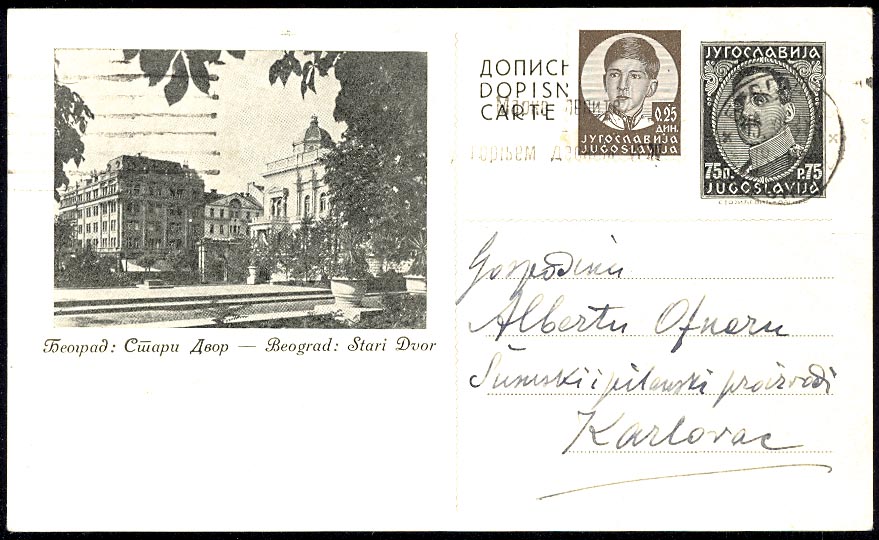 Београд: Стари Двор — Beograd: Stari Dvor
ДОПИСН
DOPISN
CARTE
0.25
ДИН.
ЈУГОСЛАВИЈА
JUGOSLAVIJA
ЈУГОСЛАВИЈА
75П. P.75
JUGOSLAVIJA
Gospodinu
Albertu Ofneru
Šumski i pilanski proizvodi
Karlovac